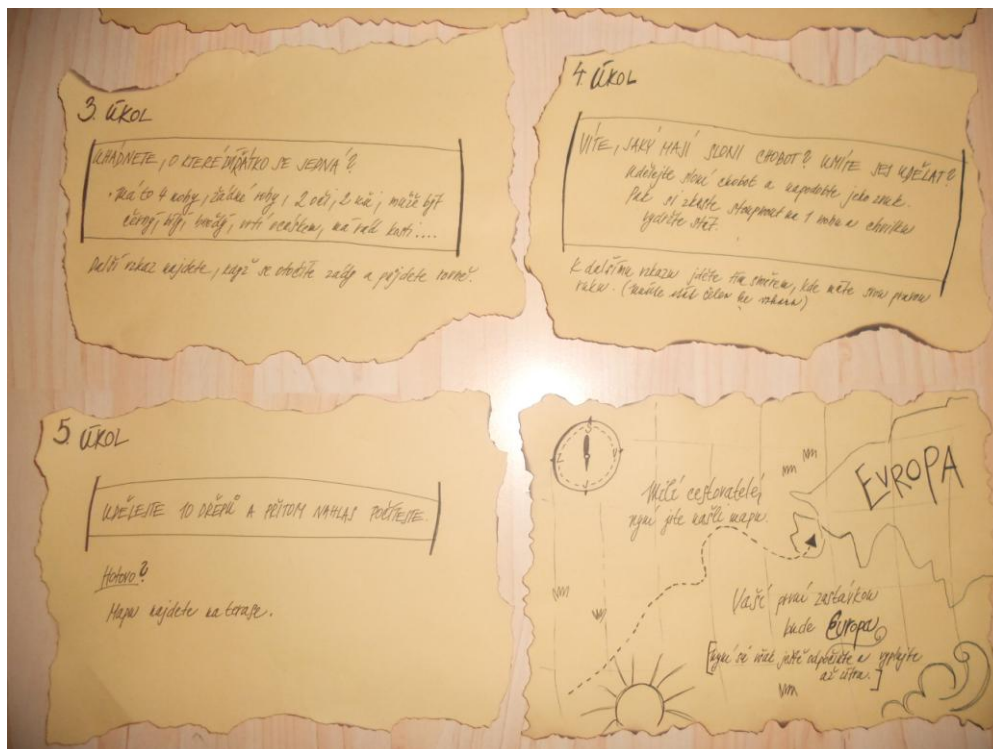 3. ÚKOL
UHÁDNETE, O KTERÉ ZVÍŘÁTKO SE JEDNÁ?
• Má to 4 nohy, žádné ruce, 2 oči, 2 uši, může být
černý, bílý, hnědý, vrtí ocáskem, má rád kosti....
Další vzkaz najdete, když se otočíte zády a půjdete rovně.
4. ÚKOL
VÍTE, JAKÝ MAJÍ SLONI CHOBOT? UMÍTE JEJ UDĚLAT?
Udělejte sloní chobot a napodobte jeho zvuk.
Pak si zkuste stoupnout na 1 nohu a chvilku
vydržte stát.
K dalšímu vzkazu jděte tím směrem, kde máte svou pravou
ruku. (musíte stát čelem ke vzkazu)
5. ÚKOL
UDĚLEJTE 10 DŘEPŮ A PŘITOM NAHLAS POČÍTEJTE.
Hotovo?
Mapu najdete na terase.
S
J
EVROPA
Milí cestovatelé,
nyní jste našli mapu.
Vaší první zastávkou
bude Evropa
[nyní si však ještě odpočiňte a vyplujte
až zítra.]